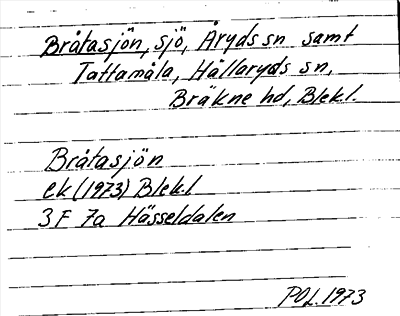 Bråtasjön, sjö, Åryds sn samt
Tattamåla, Hällaryds sn,
Bräkne hd, Blekl.
Bråtasjön
ek (1973) Blekl
3F 7a Hässeldalen
POL. 1973